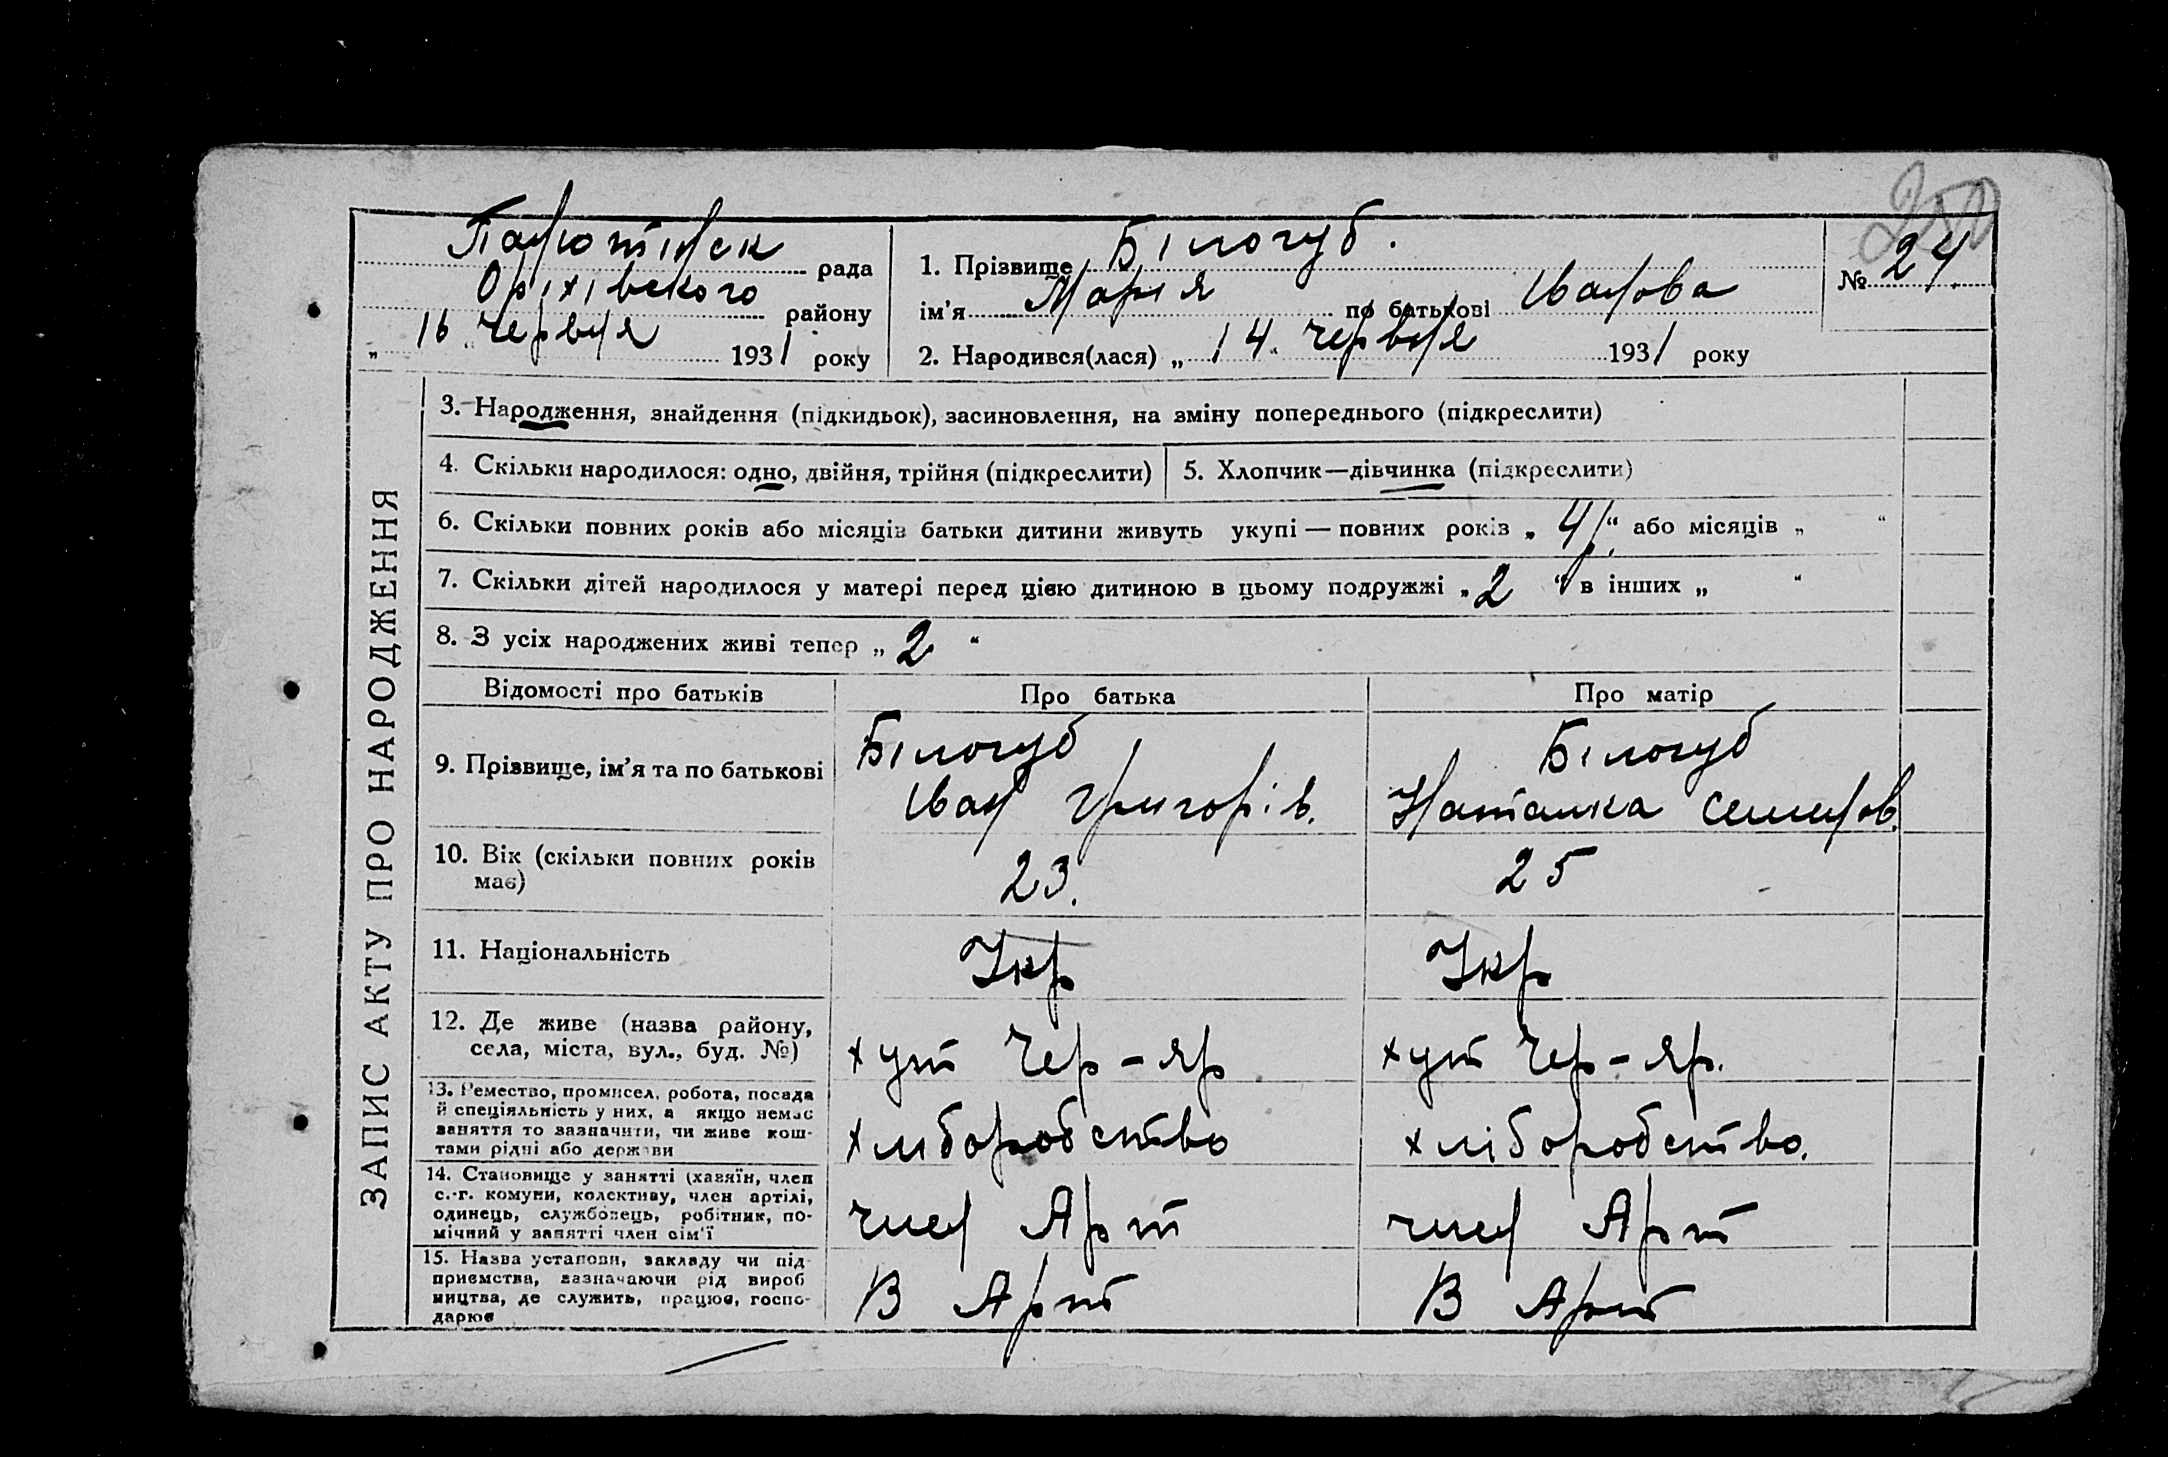 250
Панютінск рада
Оріхівського району
„ 16 " червня 1931 року
1. Прізвище Білогуб.
ім'я Марія по батькові Іванова
2. Народився(лася) „ 14 " червня 1931 року
№ 24.
ЗАПИС АКТУ ПРО НАРОДЖЕННЯ
3. Народження, знайдення (підкидьок), засиновлення, на зміну попереднього (підкреслити)
4. Скільки народилося: одно, двійня, трійня (підкреслити)
5. Хлопчик—дівчинка (підкреслити)
6. Скільки повних років або місяців батьки дитини живуть укупі — повних років „ 4 " або місяців „ "
7. Скільки дітей народилося у матері перед цією дитиною в цьому подружжі „ 2 " в інших „ "
8. З усіх народжених живі тепер „ 2 "
Відомості про батьків
Про батька
Про матір
9. Прізвище, ім'я та по батькові
Білогуб
Іван Григорів.
Білогуб
Наталка Семенов.
10. Вік (скільки повних років
має)
23.
25
11. Національність
Укр
Укр
12. Де живе (назва району,
села, міста, вул., буд. №)
хут Чер-яр
хут Чер-яр.
13. Ремество, промисел, робота, посада
й спеціяльність у них, а якщо немає
заняття то зазначити, чи живе кош-
тами рідні або держави
хліборобство
хліборобство.
14. Становище у занятті (хазяїн, член
с.-г. комуни, колективу, член артілі,
одинець, службовець, робітник, по-
мічний у занятті член сім'ї
член Арт
член Арт
15. Назва установи, закладу чи під-
приємства, зазначаючи рід вироб
ництва, де служить, працює, госпо-
дарює
В Арт
В Арт